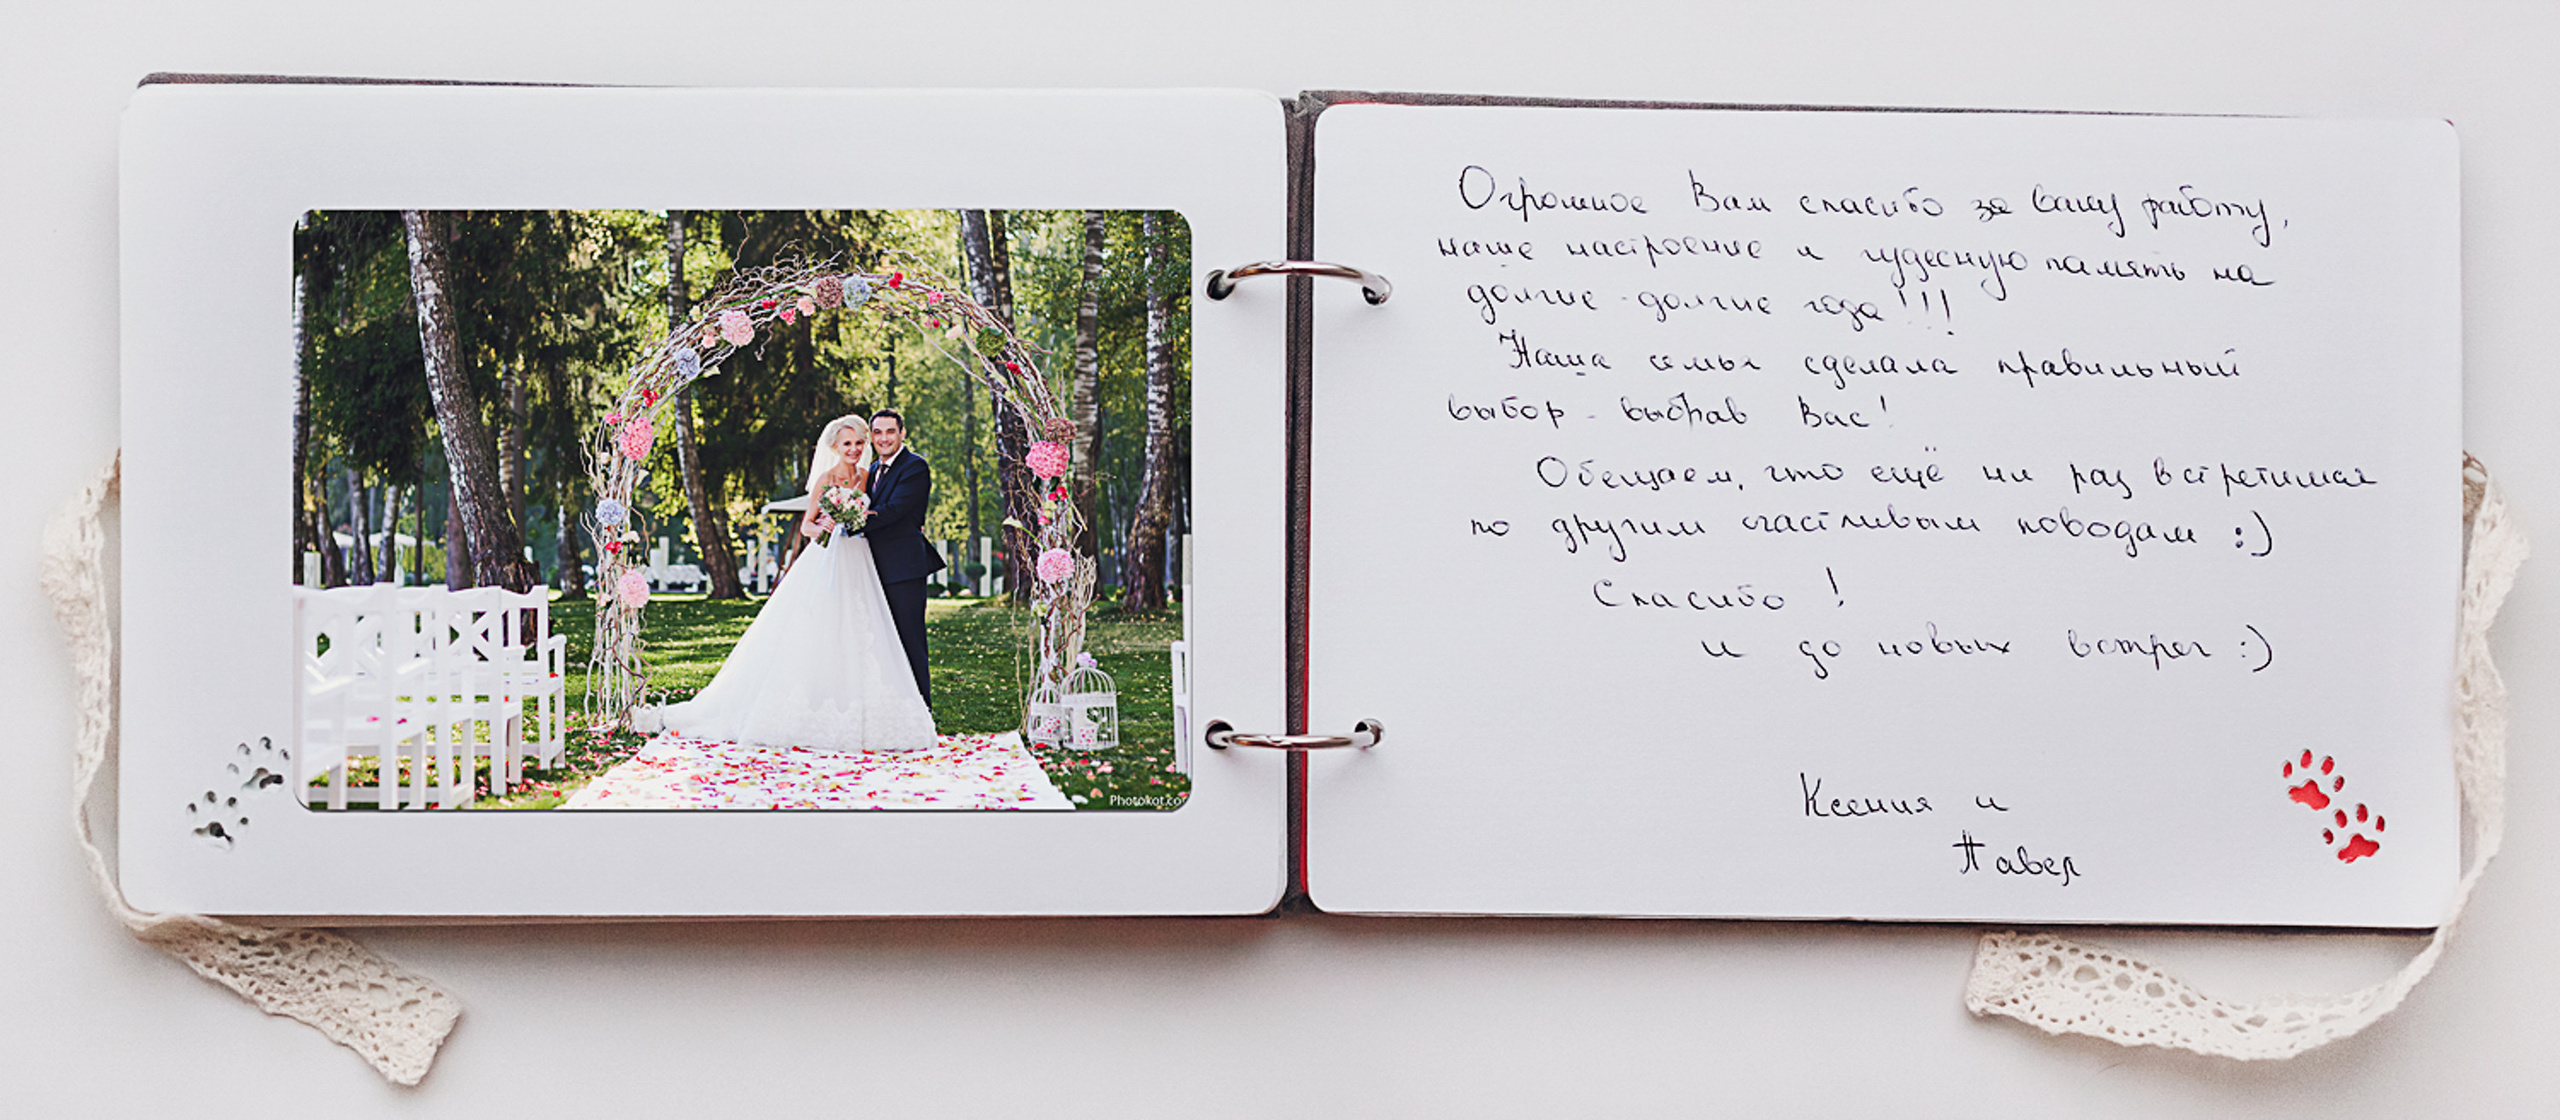 Photokot.co
Огромное Вам спасибо за вашу работу,
наше настроение и чудесную память на
долгие-долгие года!!!
Наша семья сделала правильный
выбор - выбрав Вас!
Обещаем, что ещё ни раз встретимся
по другим счастливым поводам :)
Спасибо!
и до новых встреч :)
Ксения и
Павел